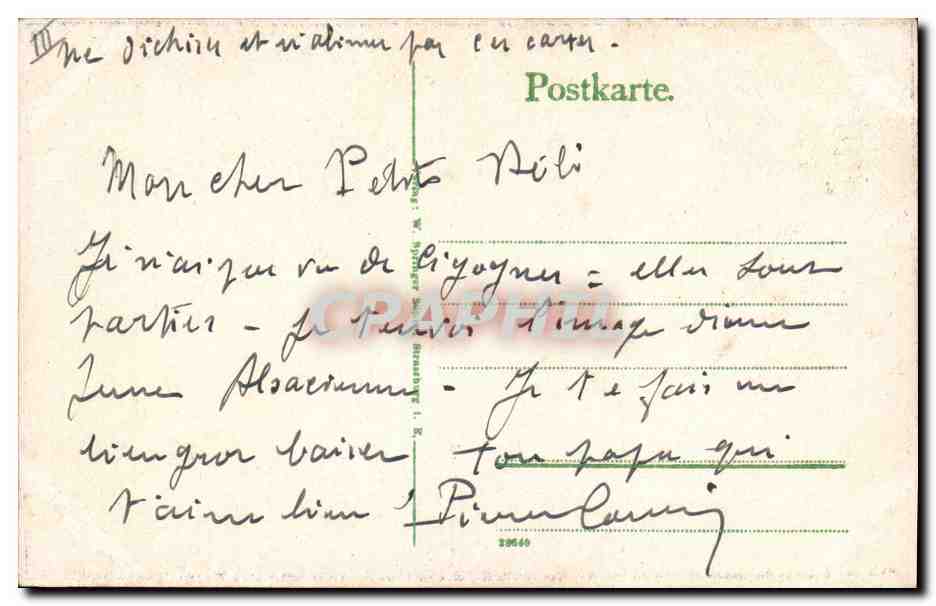 III Ne déchirer et n'abimer pas ces cartes.
Postkarte.
Mon cher Petit
Je n'ai pas vu de Cigognes = elles sont
parties - Je t'envoi l'image d'une
Jeune Alsacienne - Je te fais un
bien gros baiser ton papa qui
t'aime bien ! Pierre
Verlag: W. Springer Strassburg i. E.
CPAPHIL